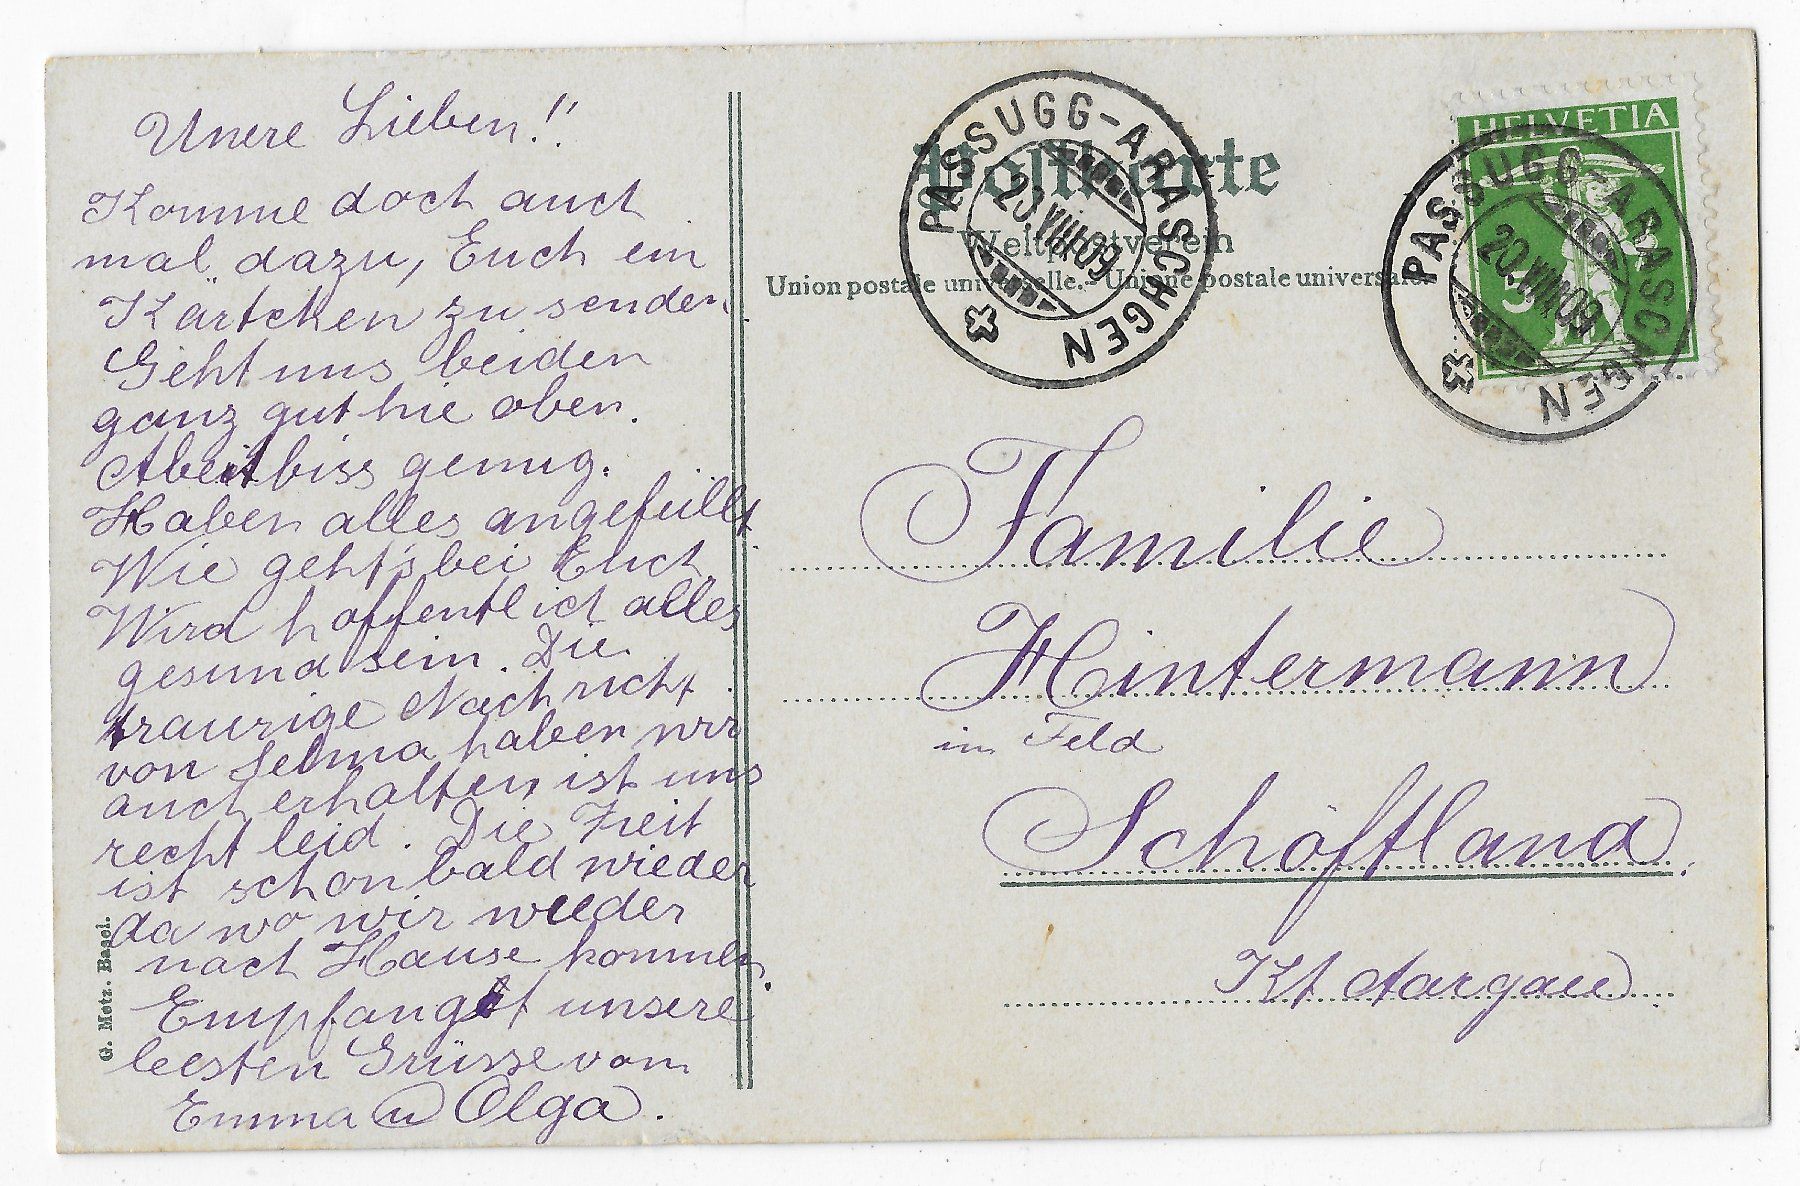 Unere Lieben!!
Komme doch auch
mal dazu, Euch ein
Kärtchen zu senden
Geht uns beiden
ganz gut hie oben.
Abeit biss genug.
Haben alles angefüllt.
Wie geht's bei Euch
Wird hoffentlich alles
gesund sein. Die
traurige Nachricht
von Selma haben wir
auch erhalten ist uns
recht leid. Die Zeit
ist schon bald wieder
da wo wir wieder
nach Hause kommen.
Empfangt unsere
besten Grüsse von
Emma u Olga.
G. Metz. Basel.
Postkarte
Weltpostverein
Union postale universelle. - Unione postale universale.
PASSUGG-ARASCHGEN
20.VIII.09
HELVETIA
5
PASSUGG-ARASCHGEN
20.VIII.09
Familie
Hintermann
im Feld
Schöftland
Kt Aargau.